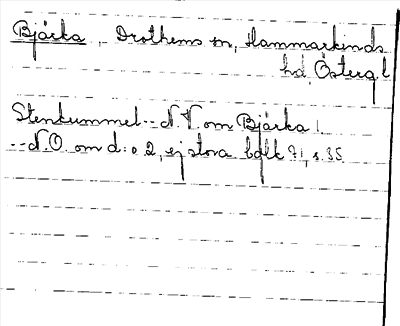 Bjärka, Drothems sn, Hammarkinds
hd, Östergl
Stenkummel -- N.V. om Bjärka 1.
-- N.O. om d:o 2, ej stora bolk ?!, s. 35